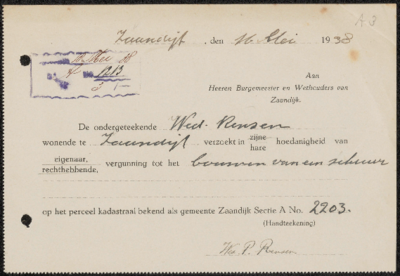 Zaandijk, den 16 Mei 1938
Aan
Heeren Burgemeester en Wethouders van
Zaandijk.
No 1213
De ondergeteekende Wed. Rensen
wonende te Zaandijk verzoekt in zijne hoedanigheid van
hare
eigenaar, vergunning tot het bouwen van een schuur
rechthebbende,
op het perceel kadastraal bekend als gemeente Zaandijk Sectie A No. 2203.
(Handteekening)
Rensen